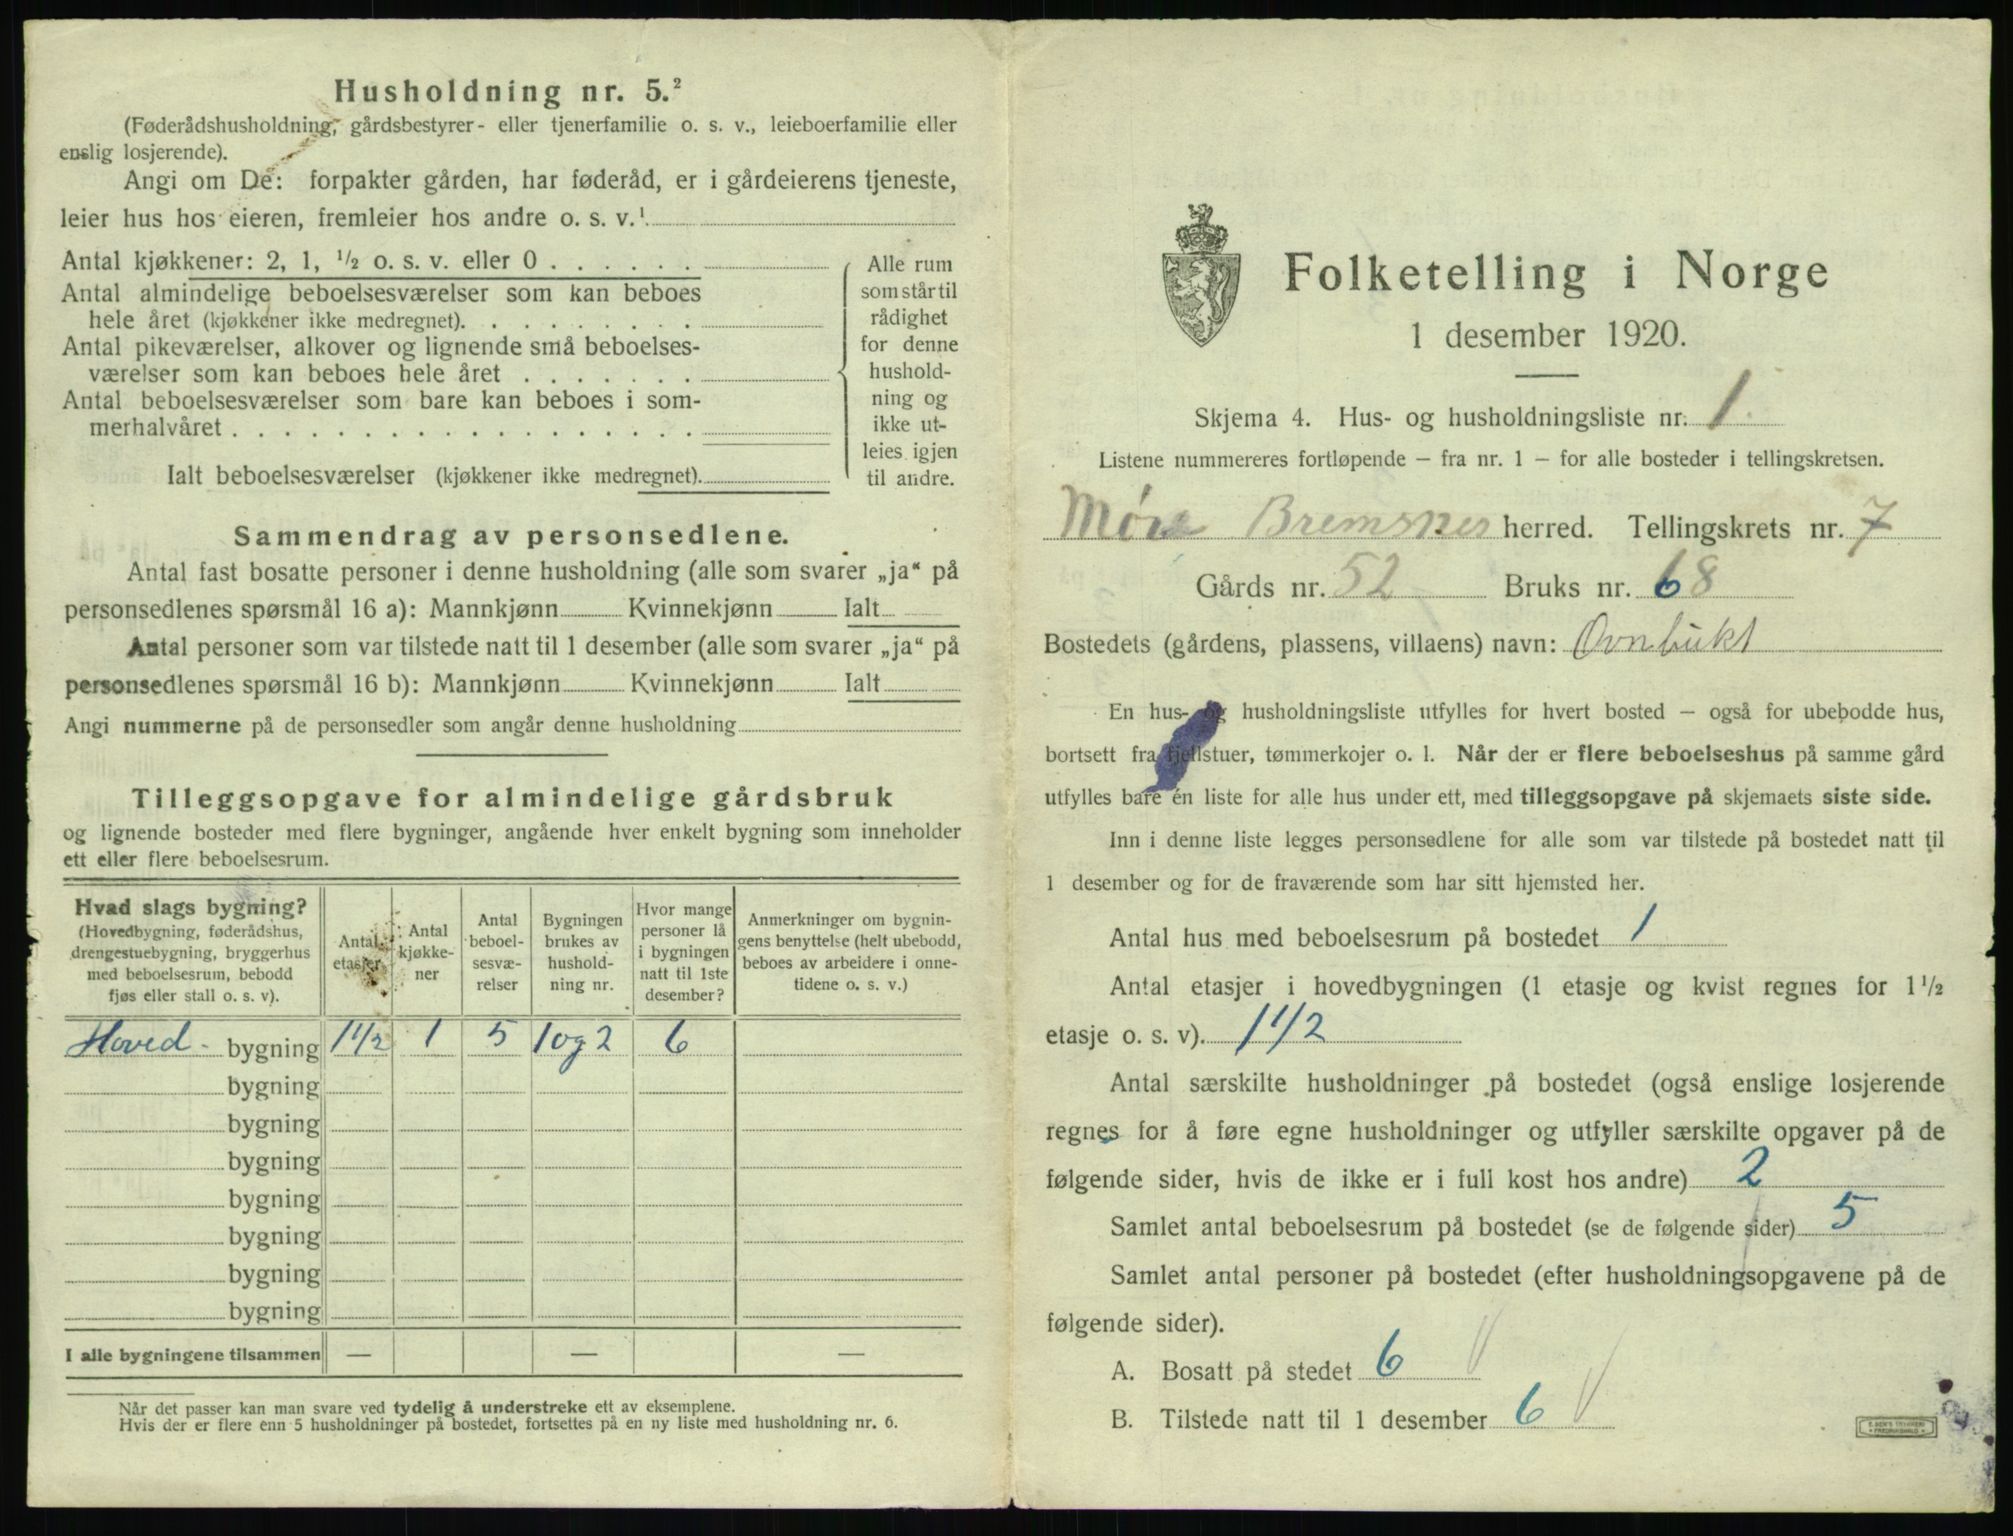 Husholdning nr. 5.²
(Føderådshusholdning, gårdsbestyrer- eller tjenerfamilie o. s. v., leieboerfamilie eller
enslig losjerende).
Angi om De: forpakter gården, har føderåd, er i gårdeierens tjeneste,
leier hus hos eieren, fremleier hos andre o. s. v.¹
Antal kjøkkener: 2, 1, ½ o. s. v. eller 0 . . . . . .
Antal almindelige beboelsesværelser som kan beboes
hele året (kjøkkener ikke medregnet). . . . . . . . .
Antal pikeværelser, alkover og lignende små beboelses-
værelser som kan beboes hele året . . . . . . .
Antal beboelsesværelser som bare kan beboes i som-
merhalvåret . . . . . . . . . . . . . . . . . .
Ialt beboelsesværelser (kjøkkener ikke medregnet).
Alle rum
som står til
rådighet
for denne
hushold-
ning og
ikke ut-
leies igjen
til andre.
Sammendrag av personsedlene.
Antal fast bosatte personer i denne husholdning (alle som svarer „ja“ på
personsedlenes spørsmål 16 a): Mannkjønn Kvinnekjønn Ialt
Antal personer som var tilstede natt til 1 desember (alle som svarer „ja“ på
personsedlenes spørsmål 16 b): Mannkjønn Kvinnekjønn Ialt
Angi nummerne på de personsedler som angår denne husholdning
Tilleggsopgave for almindelige gårdsbruk
og lignende bosteder med flere bygninger, angående hver enkelt bygning som inneholder
ett eller flere beboelsesrum.
Hvad slags bygning?
(Hovedbygning, føderådshus,
drengestuebygning, bryggerhus
med beboelsesrum, bebodd
fjøs eller stall o. s. v).
Antal
etasjer
Antal
kjøkke-
ner
Antal
beboel-
sesvæ-
relser
Bygningen
brukes av
hushold-
ning nr.
Hvor mange
personer lå
i bygningen
natt til 1ste
desember?
Anmerkninger om bygnin-
gens benyttelse (helt ubebodd,
beboes av arbeidere i onne-
tidene o. s. v.)
Hoved- bygning 1 1/2 1 5 1 og 2 6
bygning
bygning
bygning
bygning
bygning
bygning
bygning
I alle bygningene tilsammen — — —
Når det passer kan man svare ved tydelig å understreke ett av eksemplene.
Hvis der er flere enn 5 husholdninger på bostedet, fortsettes på en ny liste med husholdning nr. 6.
Folketelling i Norge
1 desember 1920.
Skjema 4. Hus- og husholdningsliste nr. 1
Listene nummereres fortløpende – fra nr. 1 – for alle bosteder i tellingskretsen.
Møre Bremsnes herred. Tellingskrets nr. 7
Gårds nr. 52 Bruks nr. 68
Bostedets (gårdens, plassens, villaens) navn: Ovnbukt
En hus- og husholdningsliste utfylles for hvert bosted – også for ubebodde hus,
bortsett fra fjellstuer, tømmerkojer o. l. Når der er flere beboelseshus på samme gård
utfylles bare én liste for alle hus under ett, med tilleggsopgave på skjemaets siste side.
Inn i denne liste legges personsedlene for alle som var tilstede på bostedet natt til
1 desember og for de fraværende som har sitt hjemsted her.
Antal hus med beboelsesrum på bostedet 1
Antal etasjer i hovedbygningen (1 etasje og kvist regnes for 1½
etasje o. s. v). 1 1/2
Antal særskilte husholdninger på bostedet (også enslige losjerende
regnes for å føre egne husholdninger og utfyller særskilte opgaver på de
følgende sider, hvis de ikke er i full kost hos andre) 2
Samlet antal beboelsesrum på bostedet (se de følgende sider) 5
Samlet antal personer på bostedet (efter husholdningsopgavene på de
følgende sider).
A. Bosatt på stedet 6
B. Tilstede natt til 1 desember 6